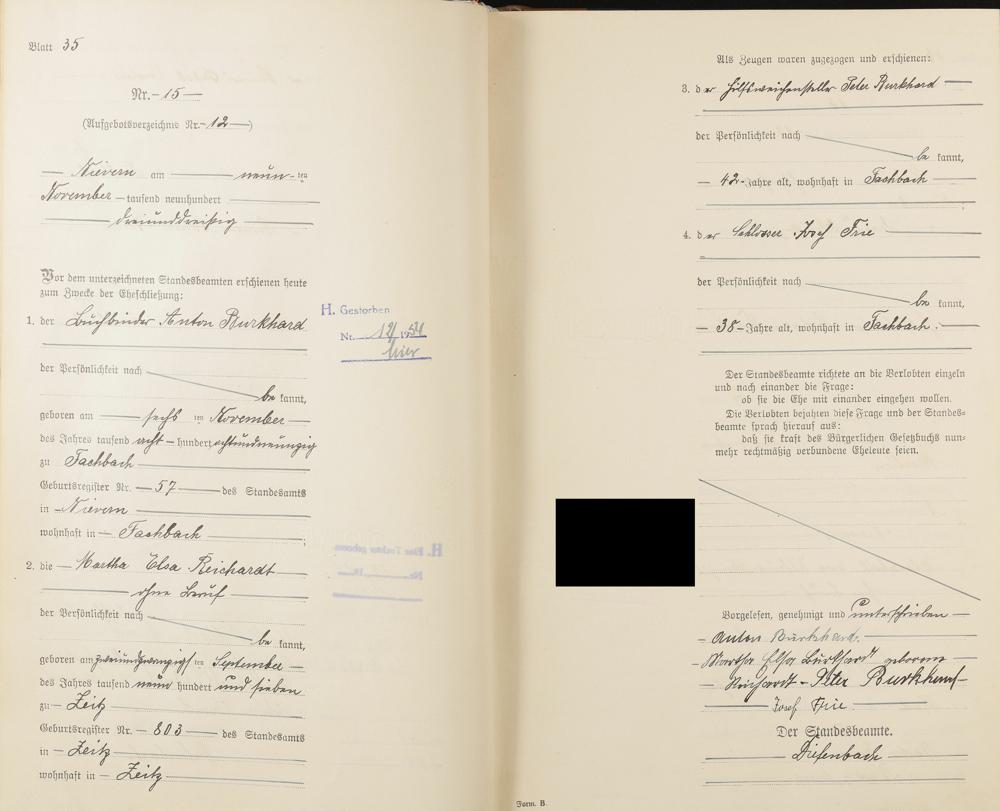 Blatt 35
Nr. 15
(Aufgebotsverzeichnis Nr. 12)
Nievern am neunten
November tausend neunhundert
dreiunddreißig
Vor dem unterzeichneten Standesbeamten erschienen heute
zum Zwecke der Eheschließung:
1. der Buchbinder Anton Burkhard
der Persönlichkeit nach
bekannt,
geboren am sechsten November
des Jahres tausend acht hundert achtundneunzig
zu Fachbach
Geburtsregister Nr. 57 des Standesamts
in Nievern
wohnhaft in Fachbach
2. die Martha Elsa Reichardt
ohne Beruf
der Persönlichkeit nach
bekannt,
geboren am zweiundzwanzigsten September
des Jahres tausend neun hundert und sieben
zu Zeitz
Geburtsregister Nr. 803 des Standesamts
in Zeitz
wohnhaft in Zeitz
H. Gestorben
Nr. 12/1954
hier
Als Zeugen waren zugezogen und erschienen:
3. der Hilfsweichensteller Peter Burkhard
der Persönlichkeit nach
bekannt,
42 Jahre alt, wohnhaft in Fachbach
4. der Schlosser Josef Frie
der Persönlichkeit nach
bekannt,
38 Jahre alt, wohnhaft in Fachbach.
Der Standesbeamte richtete an die Verlobten einzeln
und nach einander die Frage:
ob sie die Ehe mit einander eingehen wollen.
Die Verlobten bejahten diese Frage und der Standes-
beamte sprach hierauf aus:
daß sie kraft des Bürgerlichen Gesetzbuchs nun-
mehr rechtmäßig verbundene Eheleute seien.
Vorgelesen, genehmigt und unterschrieben
Anton Burkhard.
Martha Elsa Burkhardt geborene
Reichardt - Peter Burkhard
Josef Frie
Der Standesbeamte.
Diefenbach
Form. B.